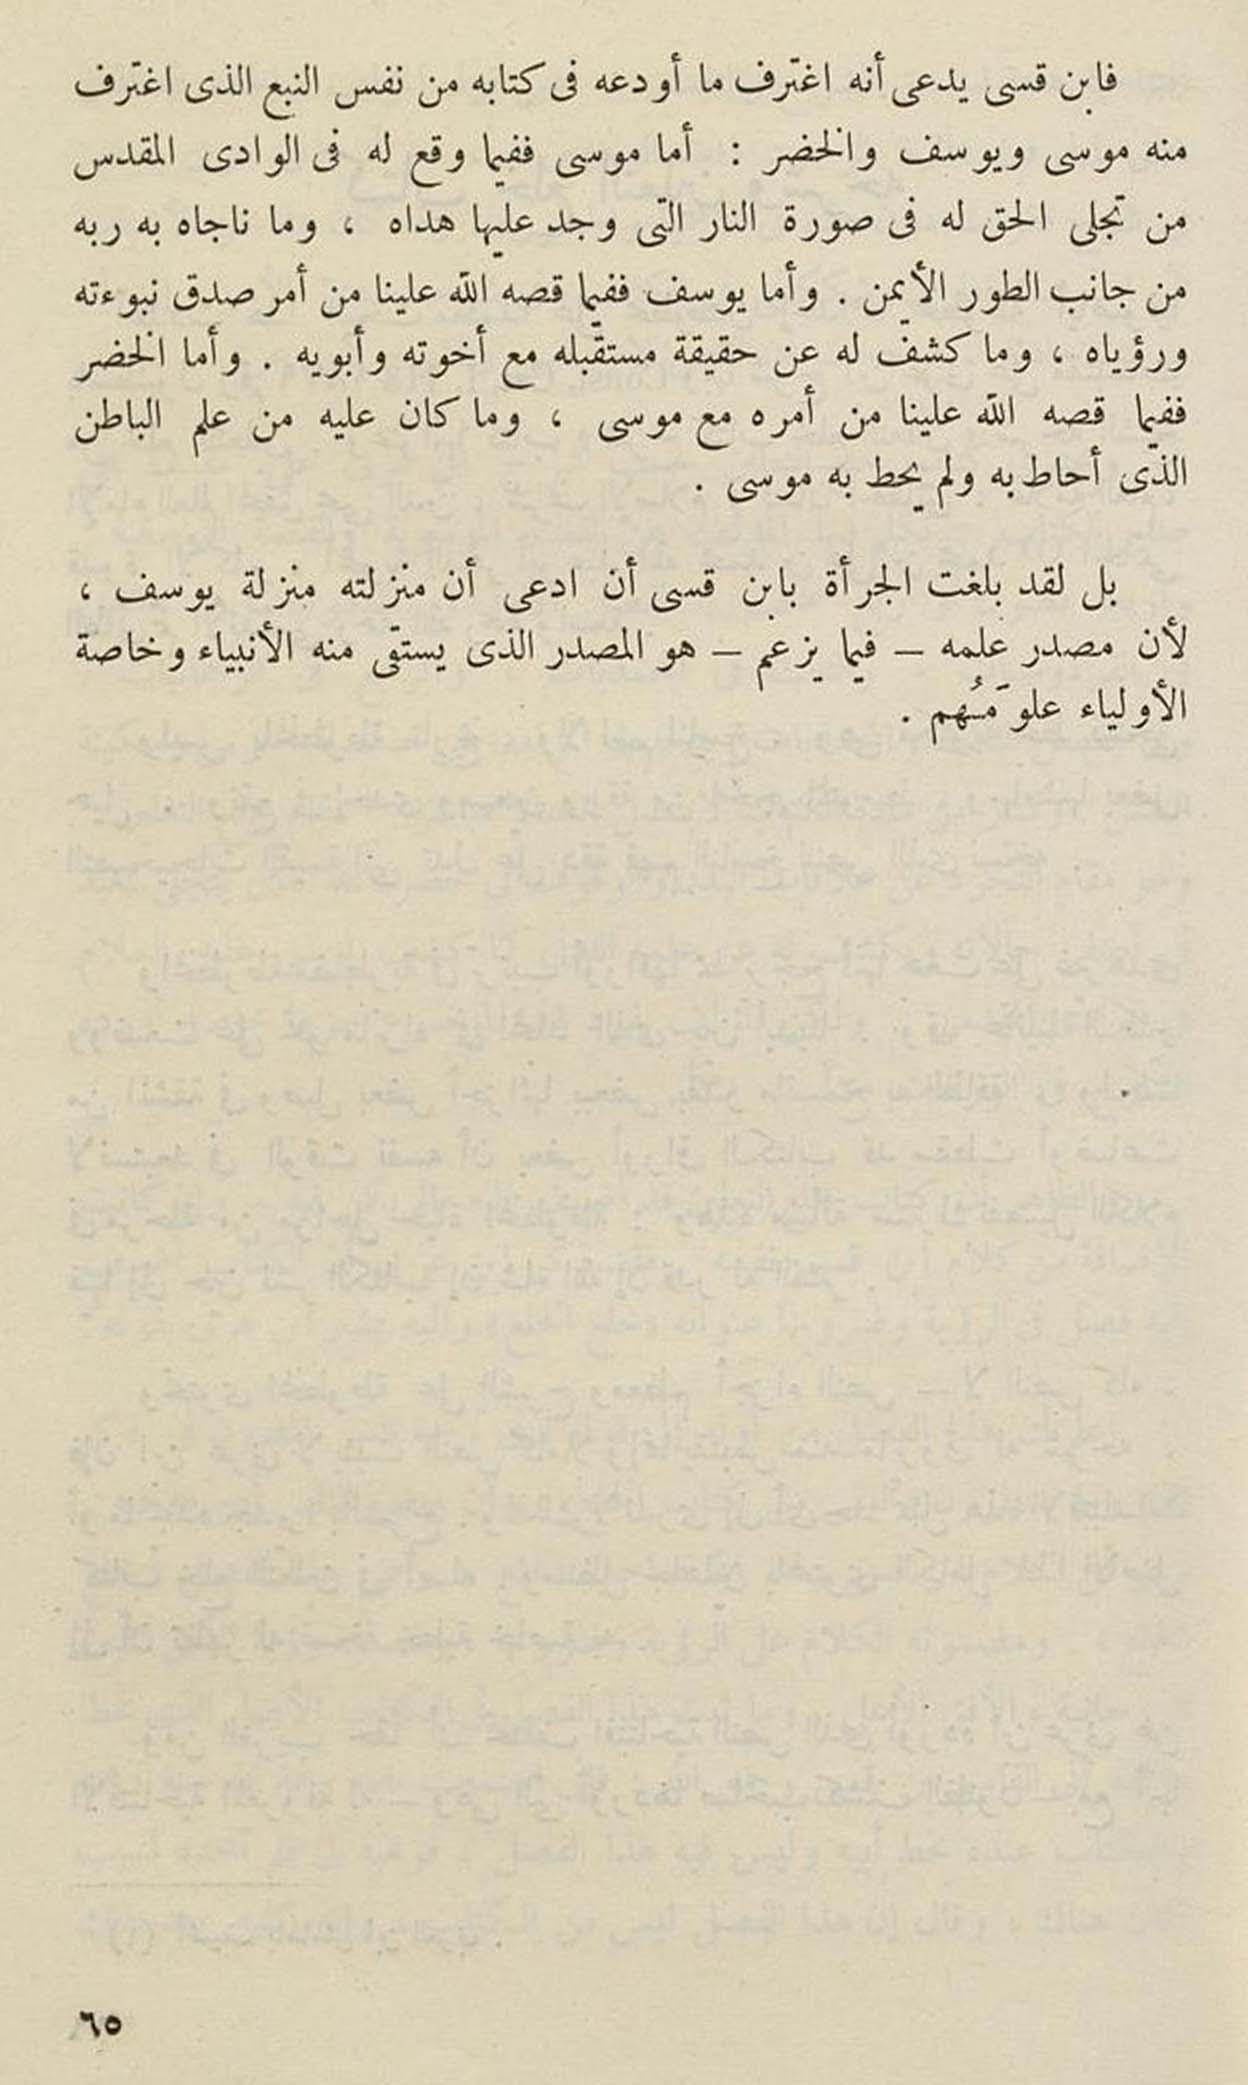 فابن قسى يدعى أنه اغترف ما أودعه فى كتابه من نفس النبع الذى اغترف
منه موسى ويوسف والخضر : أما موسى ففيما وقع له فى الوادى المقدس
من تجلى الحق له فى صورة النار التى وجد عليها هداه ، وما ناجاه به ربه
من جانب الطور الأيمن . وأما يوسف ففيما قصه الله علينا من أمر صدق نبوءته
ورؤياه ، وما كشف له عن حقيقة مستقبله مع أخوته وأبويه . وأما الخضر
ففيما قصه الله علينا من أمره مع موسى ، وما كان عليه من علم الباطن
الذى أحاط به ولم يحط به موسى .
بل لقد بلغت الجرأة بابن قسى أن ادعى أن منزلته منزلة يوسف ،
لأن مصدر علمه – فيما يزعم – هو المصدر الذى يستقى منه الأنبياء وخاصة
الأولياء علومَهُم .
٦٥